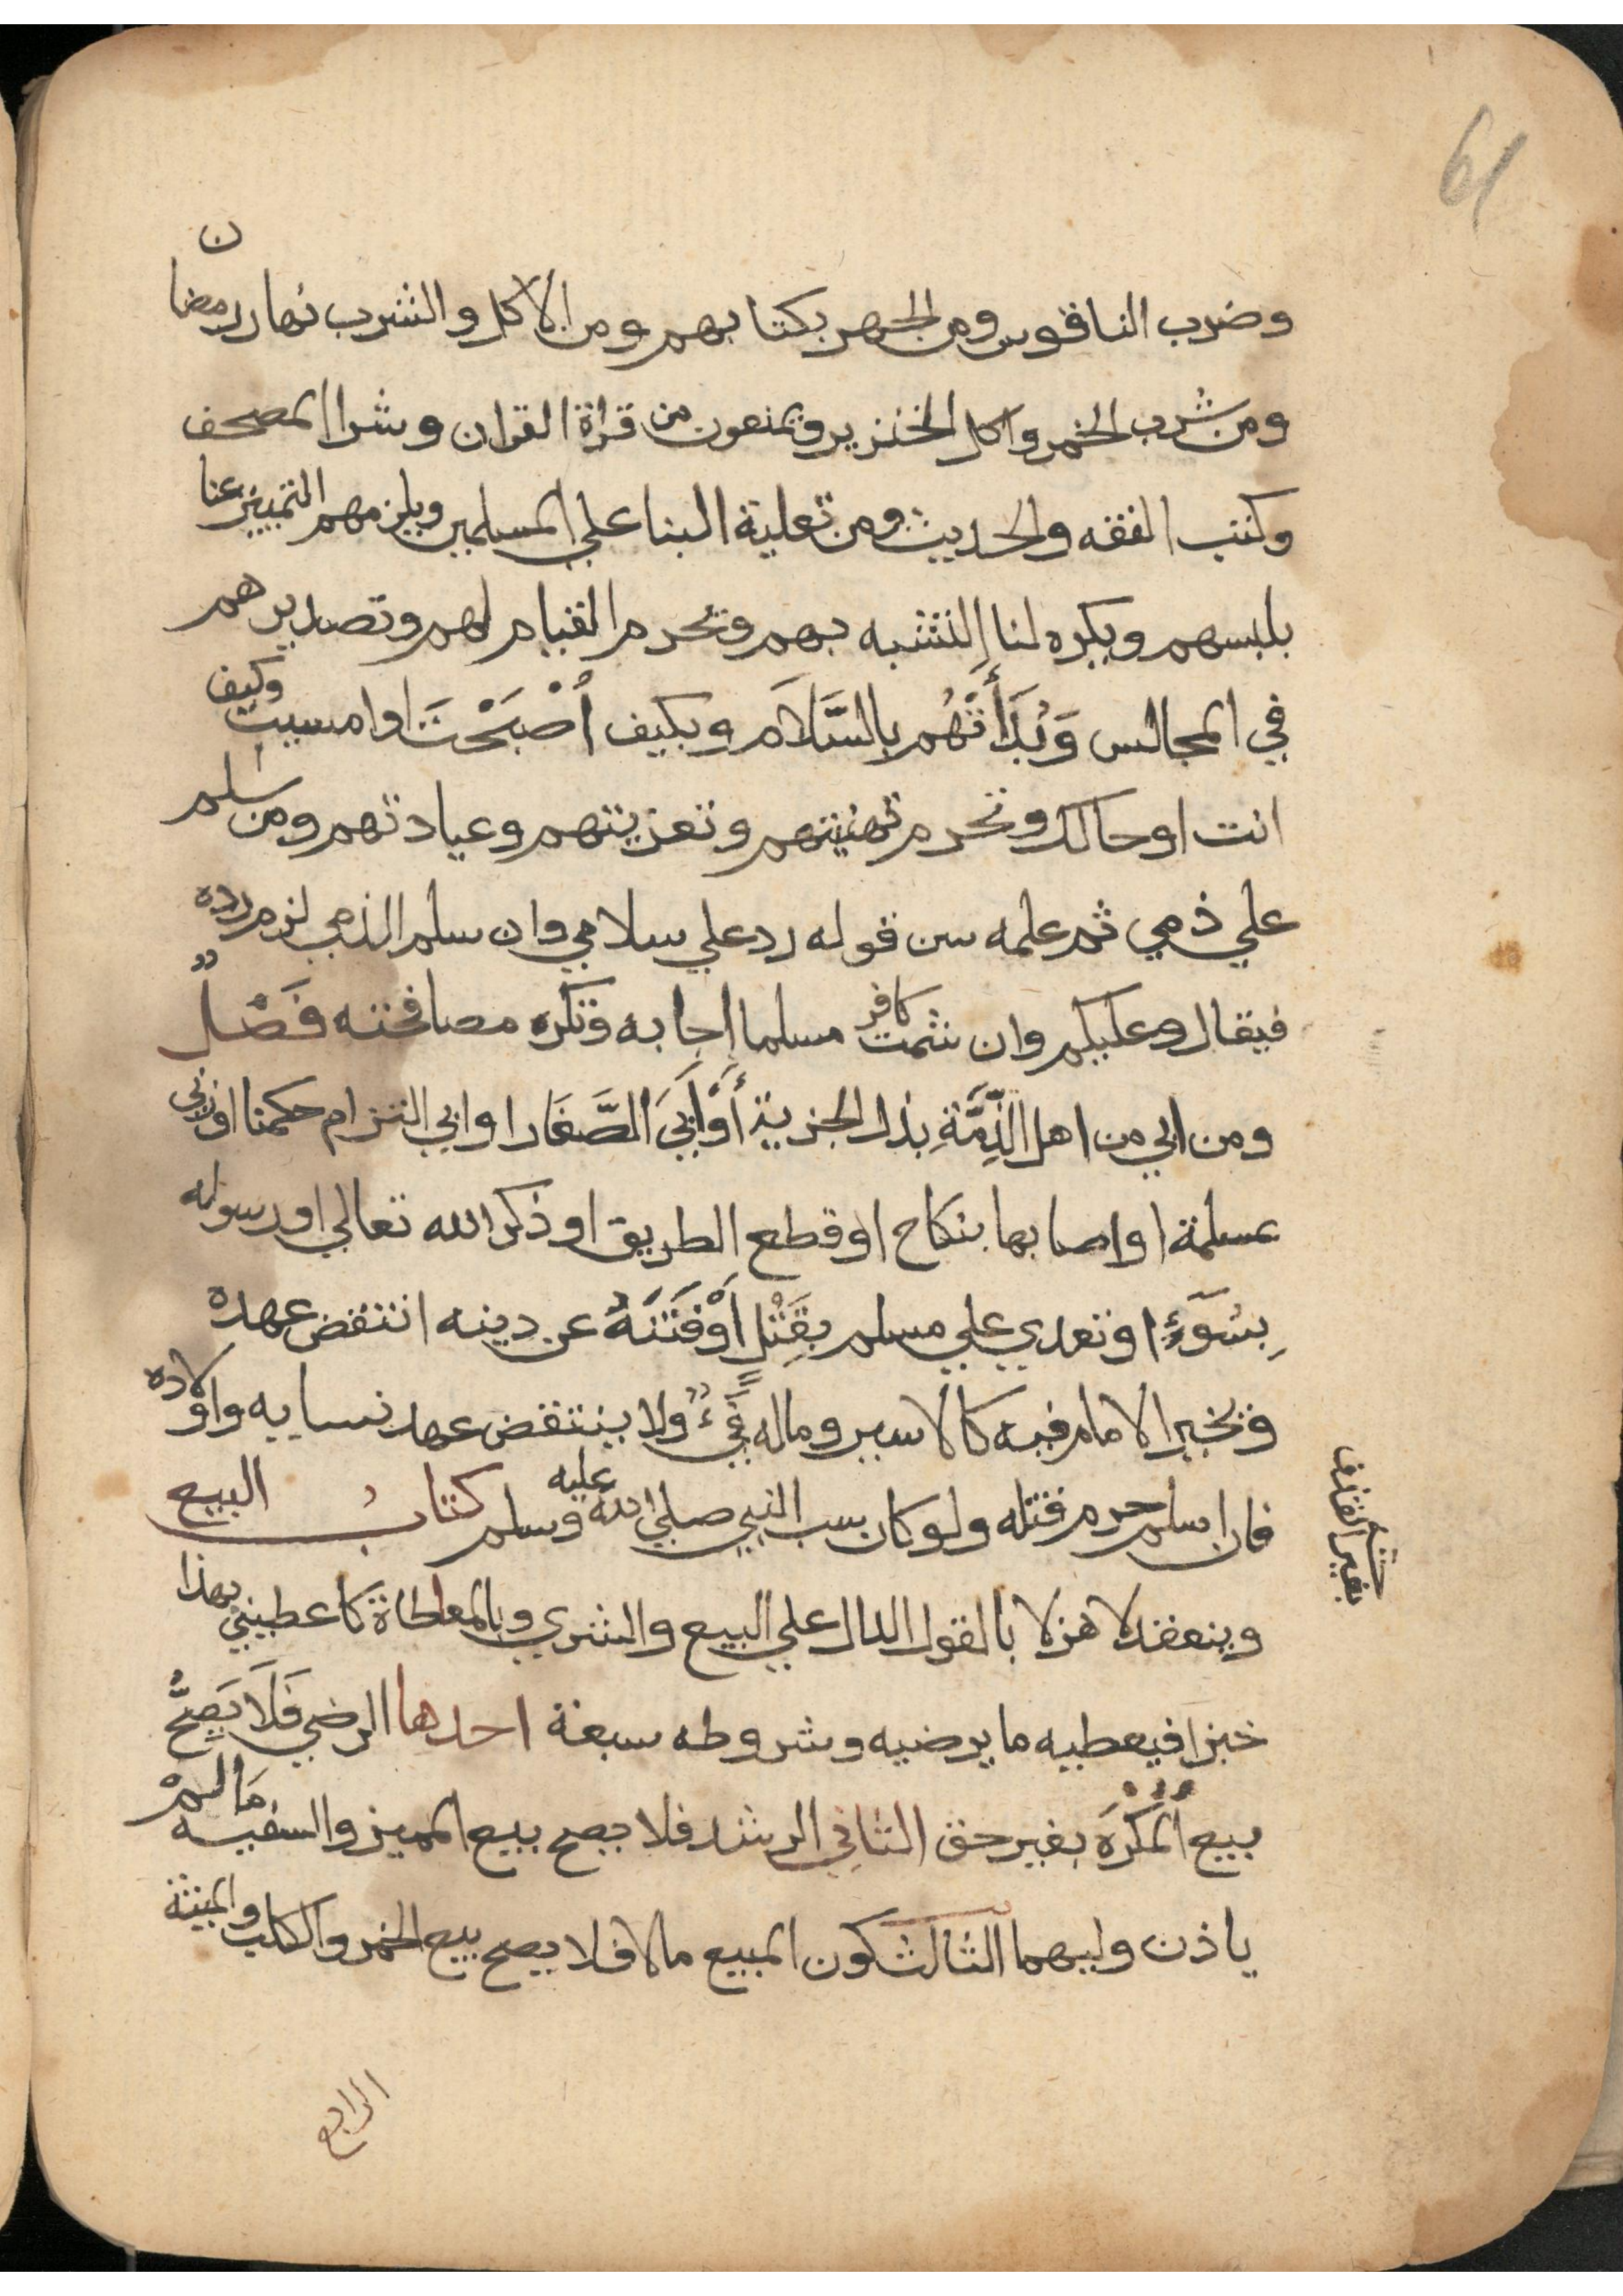 61
وضرب الناقوس ومن الجهر بكتابهم ومن الاكل والشرب نهار رمضان
ومن شرب الخمر واكل الخنزير ويمنعون من قراة القران وشرا المصحف
وكتب الفقه والحديث ومن تعلية البنا علي المسلمين ويلزمهم التمييز عنا
بلبسهم ويكره لنا التشبه بهم ويحرم القيام لهم وتصديرهم
في المجالس وَبُدَأَتُهُم بالسَّلاَم وبكيف أَصْبَحْتَ او امسيت وكيف
انت او حالك وتحرم تهنيتهم وتعزيتهم وعيادتهم ومن سلم
علي ذمي ثم علمه سن قوله رد علي سلامي وان سلم الذمي لزم رده
فيقال وعليكم وان شمت كافر مسلما اجابه وتكره مصافحته فَصْلٌ
ومن ابي من اهل الذِّمَّةِ بذل الجزية أَوْ أَبَيَ الصَّغَار او ابي التزام حكمنا او زني
بمسلمة او اصابها بنكاح او قطع الطريق او ذكر الله تعالي او رسوله
بِسُوَءٍ او تعدي علي مسلم بِقَتْلٍ أَوْ فَتَنَهُ عن دينه انتقض عهده
ويخير الامام فيه كالاسير وماله فَيْءٌ ولا ينتقض عهد نسايه واولاده
فان اسلم حرم قتله ولو كان بسب النبي صلي الله عليه وسلم كتاب البيع
وينعقد لا هزلا بالقول الدال علي البيع والشري وبالمعاطاة كاعطيني بهذا
خبزا فيعطيه ما يرضيه وشروطه سبعة احدها الرضي فَلاَ يَصِحُّ
بيع المُكْرَهِ بغير حق الثاني الرشد فلا يصح بيع المميز والسفيه مَا لَمْ
ياذن وليهما الثالث كون المبيع مالا فلا يصح بيع الخمر والكلب والميتة
الرابع